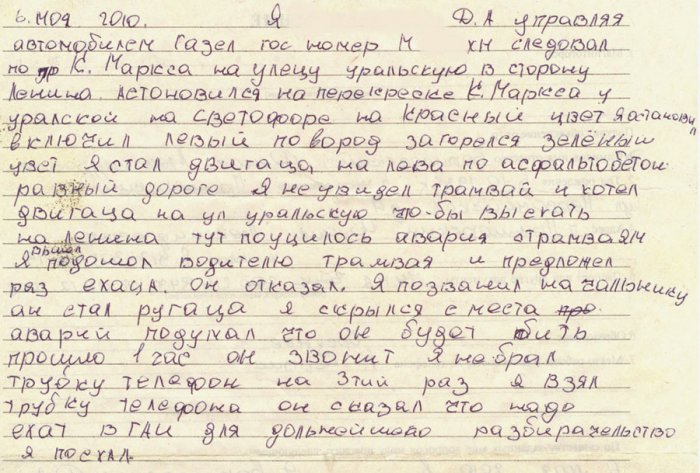 6. ноя 2010. Я Д.А управляя
автомобилем Газел гос номер М хн следовал
по пр К. Маркса на улецу уральскую в сторону
Ленина. Астоновился на перекреске К. Маркса у
уралской на светофоре на Красный цвет Я астановил
включил левый по вород загорелся зелёныш
цвет Я стал двигаца на лева по асфальтобетон-
равный дороге Я не увидел трамвай и хотел
двигаца на ул уральскую что-бы выехать
на Ленина тут поуцилось авария странваям
Я вышел подошол водителю трамвая и предложел
раз ехаца он отказал. Я позванил начальнику
ан стал ругаца я скрылся с места
аварий подумал что он будет бить
прошло 1 час он звонит Я не брал
трубку телефон на 3тий раз я взял
трубку телефона он сказал что надо
ехат в ГАИ для дольнейшово разбирательство
я поехал.